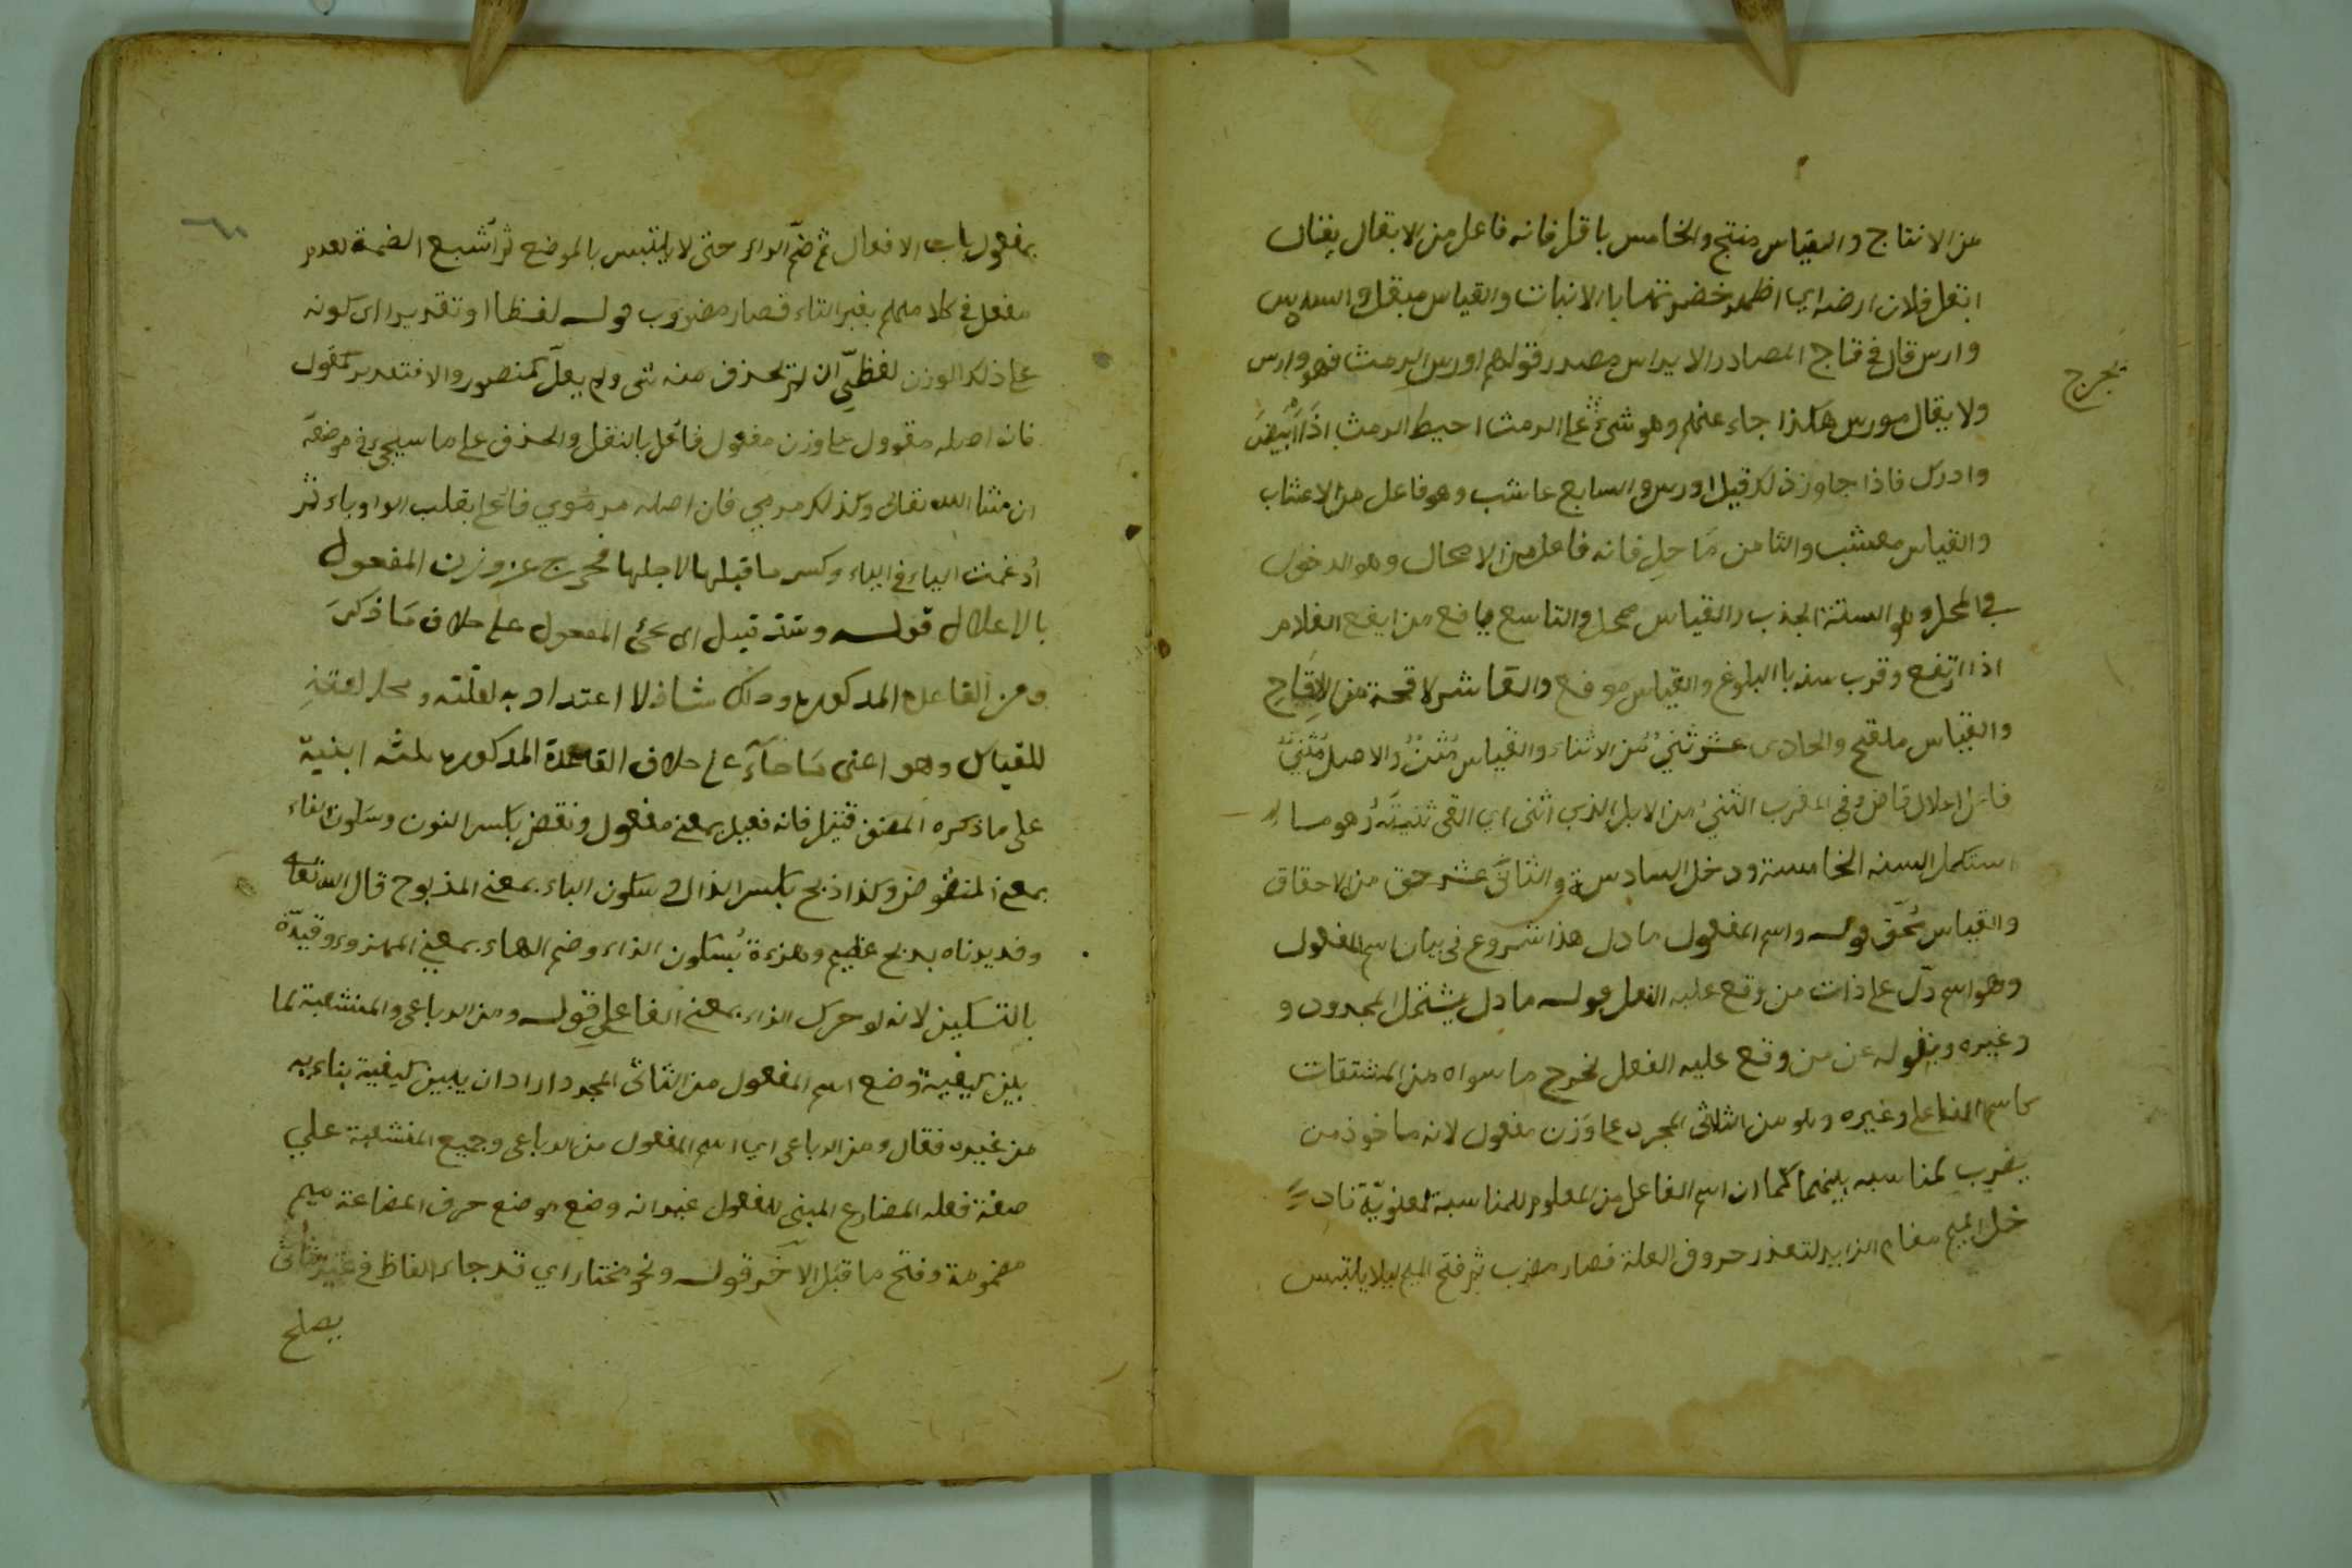 من الانتاج والقياس منتج والخامس باقل فانه فاعل من الابقال يقال
ابقل فلان ارضه اي اظهر خضرتها بالانبات والقياس مبقل والسادس
وارس قال في تاج المصادر الايراس مصدر قولهم اورس الرمث فهو وارس
ولا يقال مورس هكذا جاء عنهم وهو شئ على الرمث احيط الرمث اذا ابيض
وادرك فاذا جاوز ذلك قيل اورس والسابع عاشب وهو فاعل من الاعشاب
والقياس معشب والثامن ماحل فانه فاعل من الامحال وهو الدخول
في المحل وهو السنة الجذب والقياس ممحل والتاسع يافع من ايفع الغلام
اذا ارتفع وقرب سنه باالبلوغ والقياس موفع والعاشر لاقحة من الالقاح
والقياس ملقح والحادى عشر ثني من الاثناء والقياس مثن والاصل مثني
فاعل اعلال قاض وفي المغرب الثني من الابل الذي اثنى اي القى ثنيته وهو ما
استكمل السنه الخامسة ودخل السادسة والثانى عشر حق من الاحقاق
والقياس محق قوله واسم المفعول ما دل هذا شروع فى بيان اسم المفعول
وهو اسم دل على ذات من وقع عليه الفعل قوله ما دل يشتمل المحدود و
وغيره وبقوله عن من وقع عليه الفعل يخرج ما سواه من المشتقات
كاسم الفاعل وغيره وهو من الثلاثى المجرد على وزن مفعول لانه ماخوذ من
يضرب لمناسبه بينهما كما ان اسم الفاعل من المعلوم للمناسبة المعنوية فاد
خل الميم مقام الزايد لتعذر حروف العلة فصار مضرب ثم فتح الميم ليلا يلتبس
يخرج
بمفعول باب الافعال ثم ضم الراء حتى لا يلتبس بالموضع ثم اشبع الضمة لعدم
مفعل في كلامهم بغير التاء فصار مضروب قوله لفظا او تقديرا اى كونه
على ذلك الوزن لفظي ان لم يحذف منه شى ولم يعل كمنصور والا فتقدير كمقول
فان اصله مقوول على وزن مفعول فاعل بالنقل والحذف على ما سيجئ في موضعه
ان شا الله تعالى وكذلك مرمي فان اصله مرموي فاعل بقلب الواو ياء ثم
ادغمت الياء في الياء وكسر ما قبلها لاجلها فخرج عن وزن المفعول
بالاعلال قوله وشذ قتيل اى مجئ المفعول على خلاف ما ذكر
من القاعدة المذكورة وذلك شاذ لا اعتداد به لقلته و
للقياس وهو اعنى ما جاء على خلاف القاعدة المذكورة ثلثه ابنية
على ما ذكره المصنف قتيل فانه فعيل بمعنى مفعول ونقض بكسر النون وسكون القاف
بمعنى المنقوض وكذا ذبح بكسر الذال وسكون الباء بمعنى المذبوح قال الله تعا
وفديناه بذبح عظيم وهزءة بسكون الزاء وضم الهاء بمعنى المهزوء وقيده
بالتسكين لانه لو حرك الزاء بمعنى الفاعل قوله ومن الرباعى والمنشعبة لما
بين كيفية وضع اسم المفعول من الثلاثى المجرد اراد ان يبين كيفية بناء به
من غيره فقال ومن الرباعى اي اسم المفعول من الرباعى وجميع المنشعبة علي
صفة فعله المضارع المبنى للمفعول غير انه وضع موضع حرف المضاعة ميم
مضمومة وفتح ما قبل الاخر قوله ونحو مختار اي قد جاء الفاظ في غير ثلاثى
يصلح